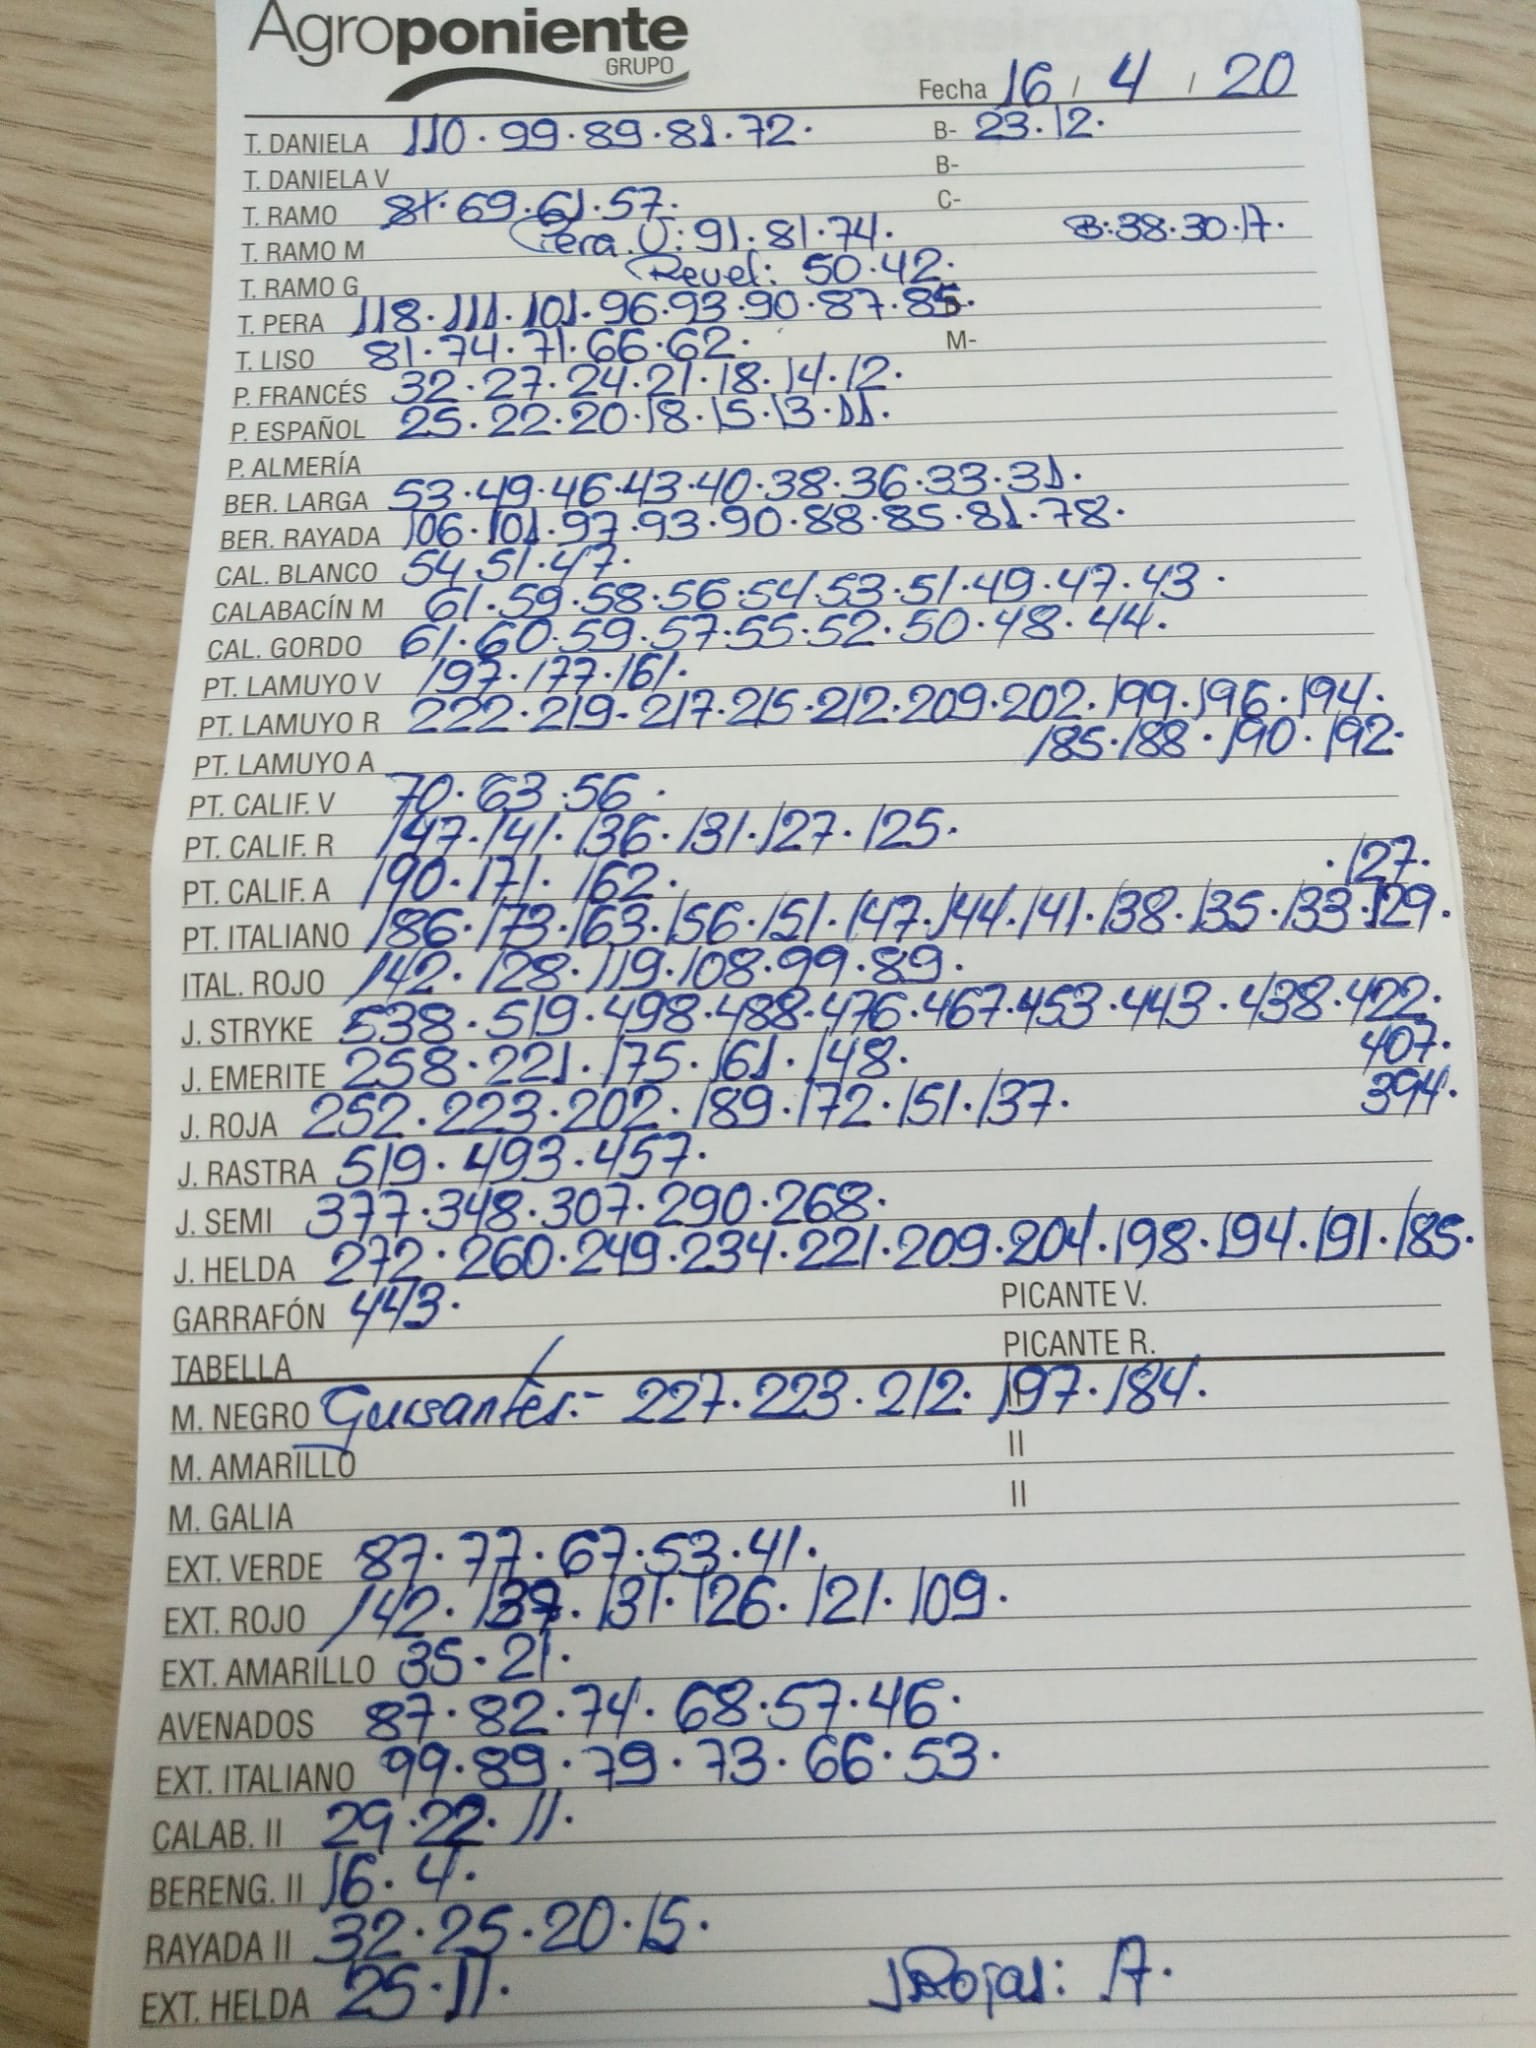 Agroponiente
GRUPO
Fecha 16 / 4 / 20
T. DANIELA 110. 99. 89. 81. 72. B- 23. 12.
T. DANIELA V B-
T. RAMO 81. 69. 61. 57. C-
T. RAMO M Pera U: 91. 81. 74. B: 38. 30. 17.
T. RAMO G Revel: 50. 42.
T. PERA 118. 111. 101. 96. 93. 90. 87. 85.
T. LISO 81. 74. 71. 66. 62. M-
P. FRANCÉS 32. 27. 24. 21. 18. 14. 12.
P. ESPAÑOL 25. 22. 20. 18. 15. 13. 11.
P. ALMERÍA
BER. LARGA 53. 49. 46. 43. 40. 38. 36. 33. 31.
BER. RAYADA 106. 101. 97. 93. 90. 88. 85. 81. 78.
CAL. BLANCO 54. 51. 47.
CALABACÍN M 61. 59. 58. 56. 54. 53. 51. 49. 47. 43.
CAL. GORDO 61. 60. 59. 57. 55. 52. 50. 48. 44.
PT. LAMUYO V 197. 177. 161.
PT. LAMUYO R 222. 219. 217. 215. 212. 209. 202. 199. 196. 194.
PT. LAMUYO A 185. 188. 190. 192.
PT. CALIF. V 70. 63. 56.
PT. CALIF. R 147. 141. 136. 131. 127. 125.
PT. CALIF. A 190. 171. 162. .127.
PT. ITALIANO 186. 173. 163. 156. 151. 147. 144. 141. 138. 135. 133. 129.
ITAL. ROJO 142. 128. 119. 108. 99. 89.
J. STRYKE 538. 519. 498. 488. 476. 467. 453. 443. 438. 422.
J. EMERITE 258. 221. 175. 161. 148. 407.
J. ROJA 252. 223. 202. 189. 172. 151. 137. 394.
J. RASTRA 519. 493. 457.
J. SEMI 377. 348. 307. 290. 268.
J. HELDA 272. 260. 249. 234. 221. 209. 204. 198. 194. 191. 185.
GARRAFÓN 443. PICANTE V.
TABELLA PICANTE R.
M. NEGRO Guisantes:- 227. 223. 212. 197. 184. II
M. AMARILLO II
M. GALIA II
EXT. VERDE 87. 77. 67. 53. 41.
EXT. ROJO 142. 137. 131. 126. 121. 109.
EXT. AMARILLO 35. 21.
AVENADOS 87. 82. 74. 68. 57. 46.
EXT. ITALIANO 99. 89. 79. 73. 66. 53.
CALAB. II 29. 22. 11.
BERENG. II 16. 4.
RAYADA II 32. 25. 20. 15.
EXT. HELDA 25. 11. JRojas: A.